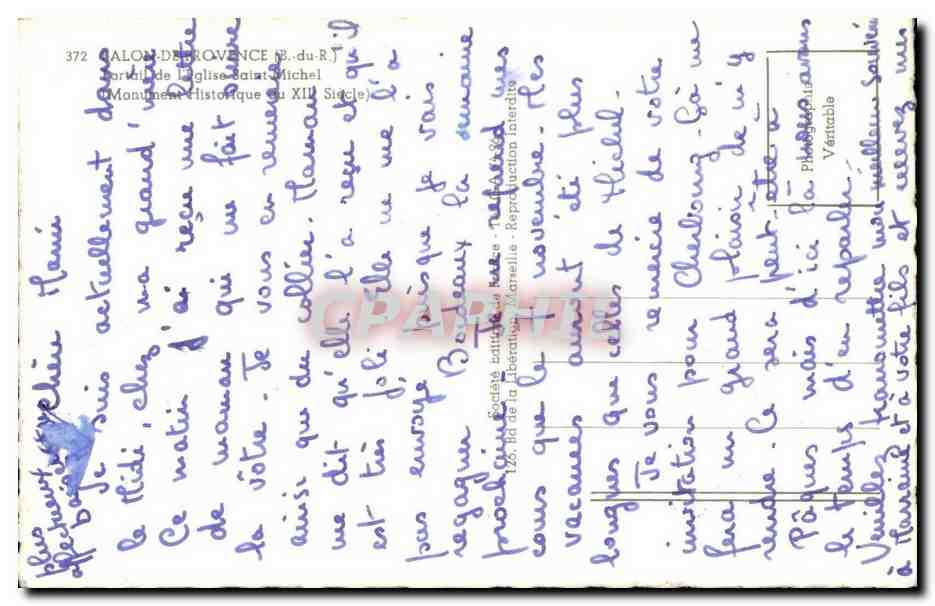 372 SALON-DE-PROVENCE (B.-du-R.)
Portail de l'Eglise Saint-Michel
(Monument Historique du XIIe Siècle)
Société Editions de France
126, Bd de la Libération, Marseille - Reproduction Interdite
Photographie
Véritable
CPARAMA
Chère Mémé
Je suis actuellement dans
le Midi, chez ma grand'mère
Ce matin j'ai reçu une lettre
de maman qui me fait suivre
la vôtre. Je vous en remercie
ainsi que du collier. Maman
me dit qu'elle l'a reçu et qu'il
est très joli. Elle ne me l'a
pas envoyé puisque je vais
regagner Bordeaux la semaine
prochaine. Je reprend mes
cours que le 1 novembre. Mes
vacances auront été plus
longues que celles de Michel.
Je vous remercie de votre
invitation pour Cherbourg. Ça me
fera un grand plaisir de m'y
rendre. Ce sera peut-être à
Pâques mais d'ici là nous avons
le temps d'en reparler.
Veuillez transmettre mon meilleur souvenir
à Marraine et à votre fils et recevez mes
plus
affectueux
baisers